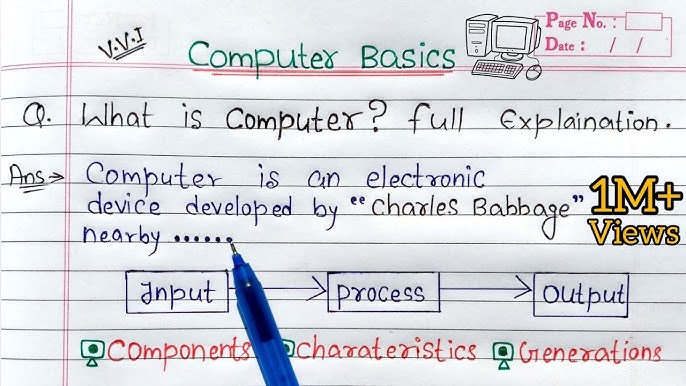 V.V.I
Computer Basics
Page No. :
Date : / /
Q. What is Computer? full Explaination.
Ans → Computer is an electronic
device developed by "Charles Babbage"
nearby ......
1M+
Views
Input → Process → Output
Components Charateristics Generations